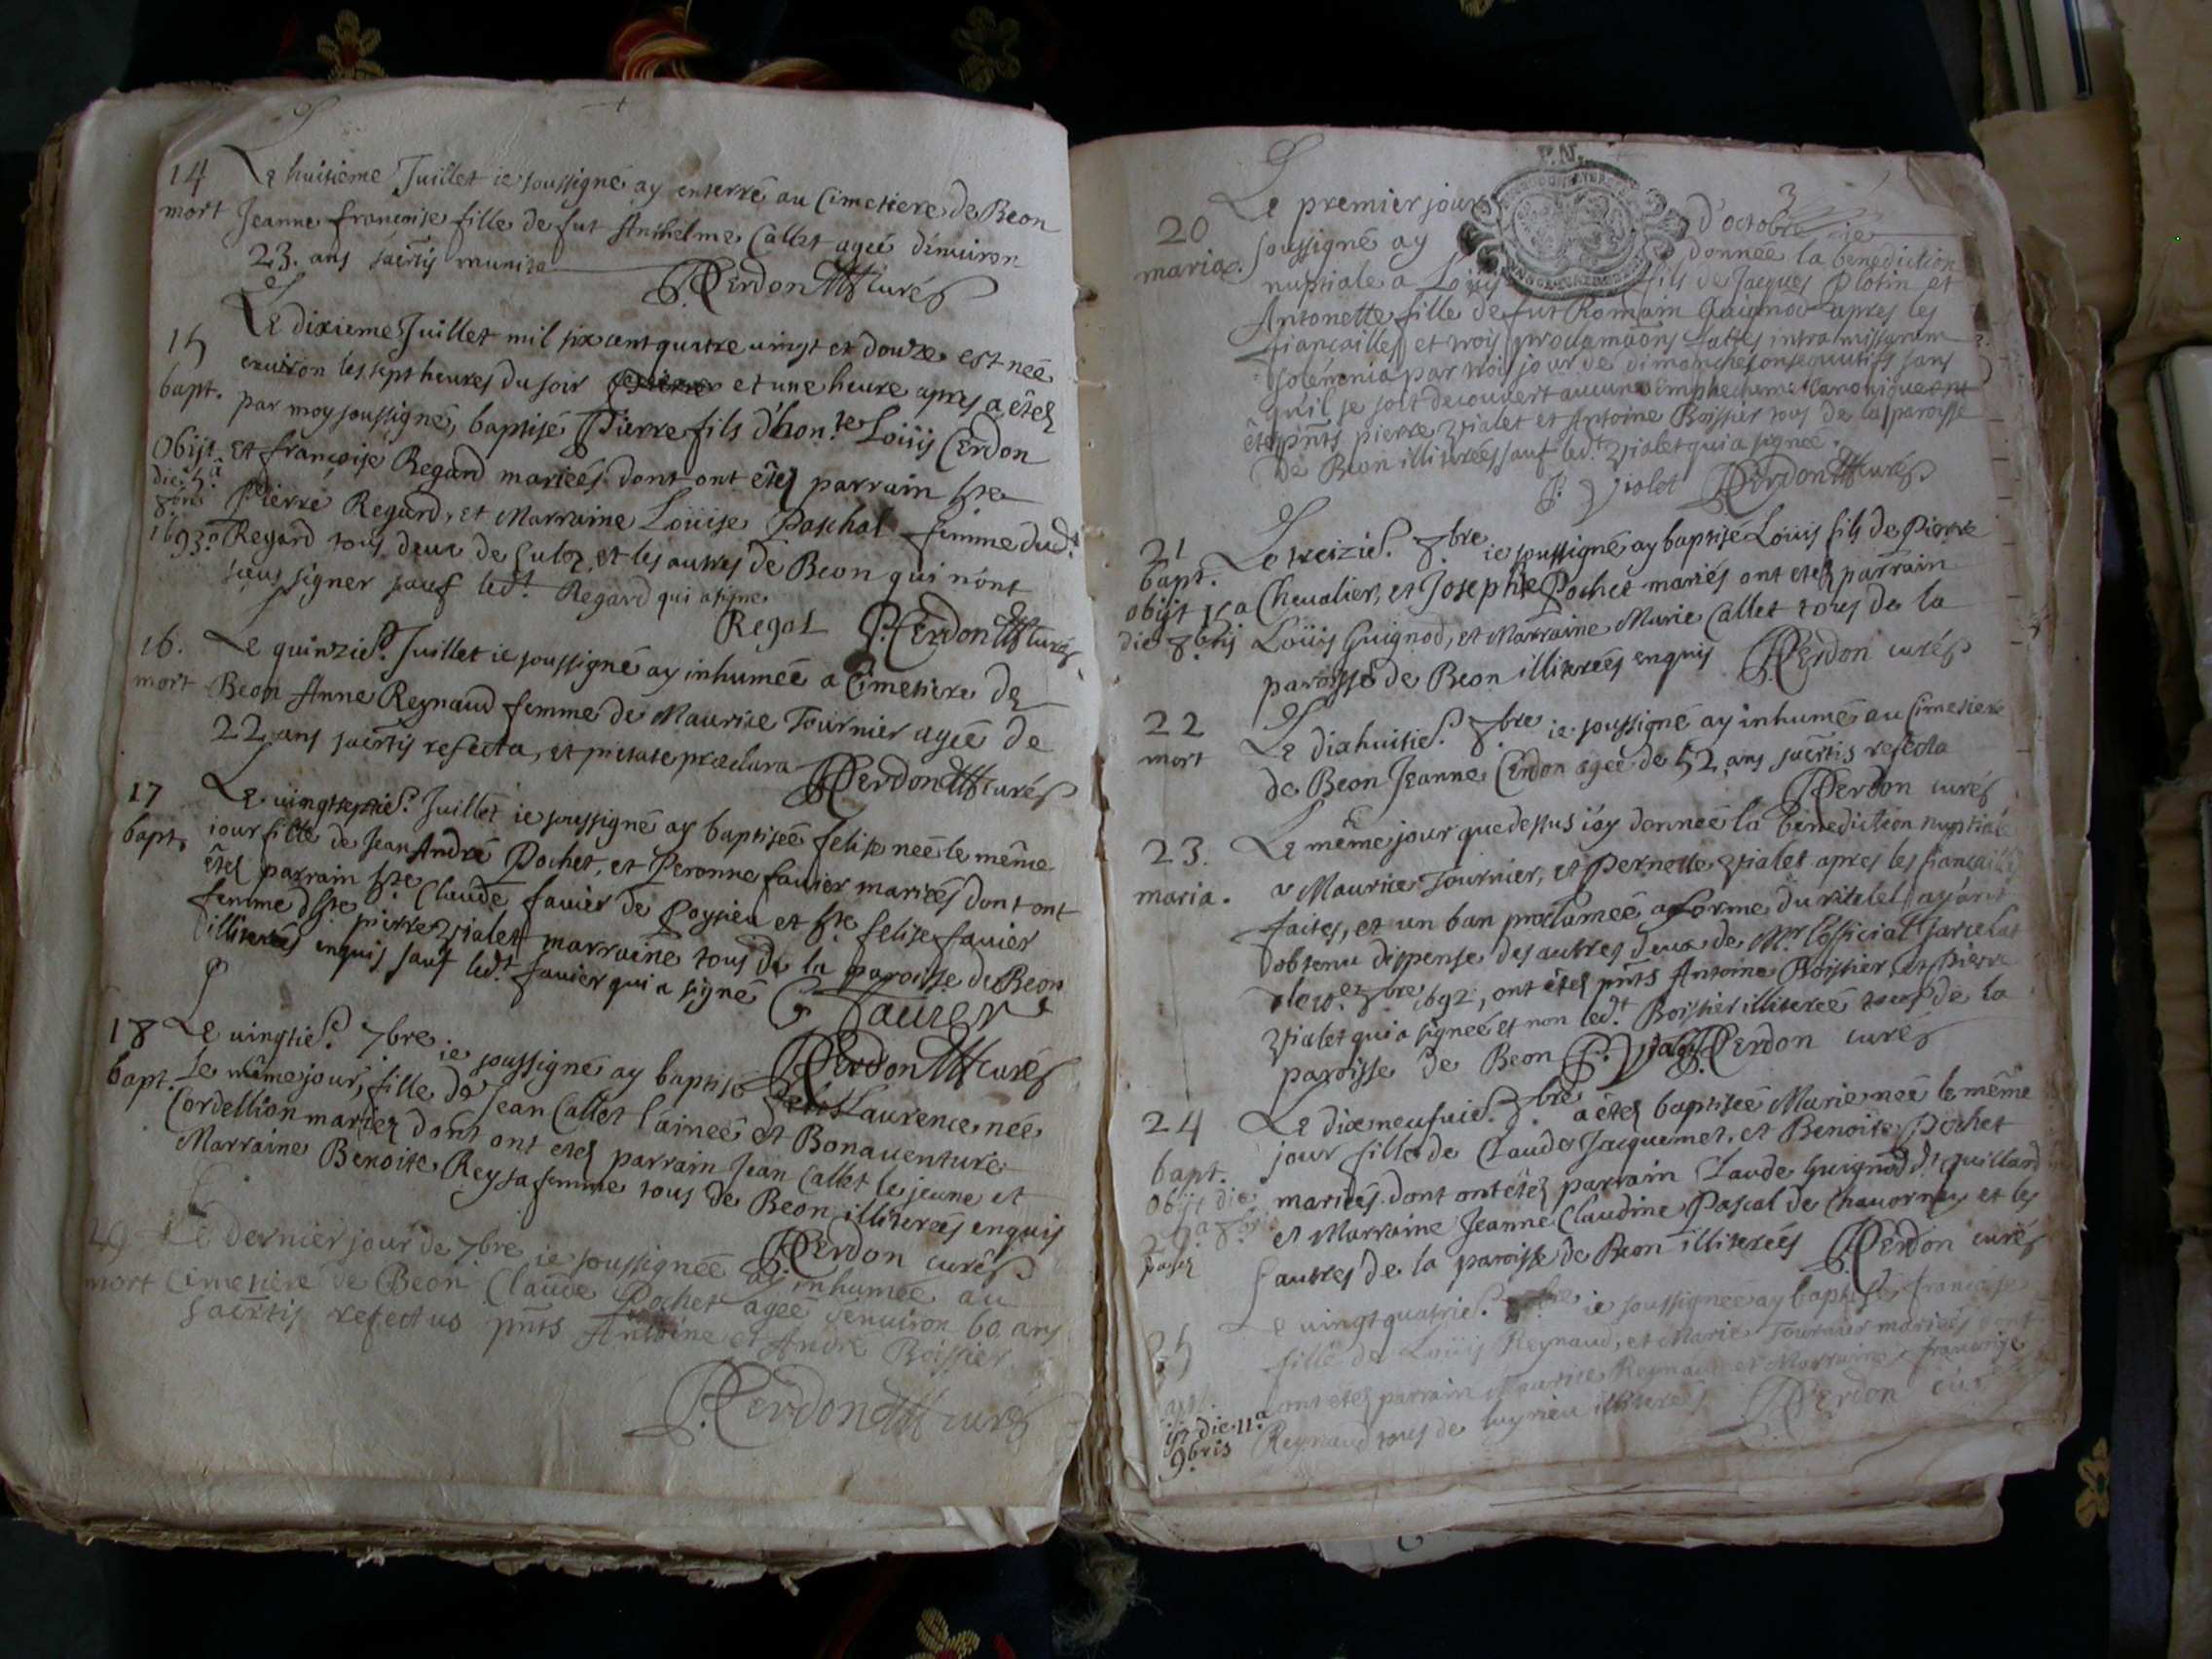 14 Le huitieme Juillet ie soussigné ay enterré au Cimetiere de Beon
mort Jeanne françoise fille de fut Anthelme Callet ageé d'enuiron
23. ans sacrtis munita
P. Cerdon curé
15 Le dixieme Juillet mil six cent quatre uingt et douze est neé
enuiron les sept heures du soir et une heure apres a êtez
bapt. par moy soussigné, baptisé Pierre fils d'hon.te Loüis Cerdon
Obijt et françoise Regard marieés dont ont êtez parrain
die 5.a Pierre Regard, et Marraine Loüise Paschal femme dud.t
1693. Regard tous deux de Culoz, et les autres de Beon qui n'ont
sceus signer sauf led.t Regard qui a signe
Regal P. Cerdon curé
16. Le quinzie. Juillet ie soussigné ay inhumeé a Cimetiere de
mort Beon Anne Reynaud femme de Maurice Tournier ageé de
22 ans sacrtis refecta, et pietate præclara
P. Cerdon curé
17 Le uingtseptie. Juillet ie soussigné ay baptiseé felise neé le même
bapt. iour fille de Jean André Pochet, et Peronne fauier marieés dont ont
êtez parrain Claude fauier de Poysieu et felise fauier
femme pierre Vialet marraine tous de la paroisse de Beon
illitereés enquis sauf led.t fauier qui a signé
P. Cerdon curé
18 Le uingtie. 7bre ie soussigné ay baptisé Laurence neé
bapt. Le même jour, fille de Jean Callet l'aineé et Bonauenture
Cordellion mariez dont ont etez parrain Jean Callet le jeune et
Marraine Benoite Rey sa femme tous de Beon illitereés enquis
P. Cerdon curé
19 Le dernier jour de 7bre ie soussigneé ay inhumeé au
mort Cimetiere de Beon Claude Pochet ageé d'enuiron 60 ans
sacrtis refectus pnts Antoine et André Boissier
P. Cerdon curé
P.N.
3
20 Le premier jour d'octobre ie
maria. soussigné ay donneé la benediction
nuptiale a Loüis fils de Jacques Plotin et
Antonette fille de fut Romain Guignod apres les
fiançailles et trois proclamãons faites intra missarum
solemnia par trois jour de dimanche consequutifs sans
qu'il se soit decouvert aucune empechement canonique ont
êtez pnts pierre Vialet et Antoine Boissier tous de la paroisse
de Beon illitereés sauf led.t Vialet qui a signeé.
P. Vialet P. Cerdon curé
21 Le treizie. 8bre ie soussigné ay baptisé Loüis fils de Pierre
bapt. Cheualier, et Josephe Pochet mariés ont etez parrain
obijt 15 a Loüis Guignod, et Marraine Marie Callet tous de la
die 8bris paroisse de Beon illitereés enquis P. Cerdon curé
22 Le dixhuitie. 8bre ie soussigné ay inhumé au Cimetiere
mort de Beon Jeanne Cerdon ageé de 52 ans sacrtis refecta
P. Cerdon curé
23. Le même jour que dessus i'ay donneé la benediction nuptiale
maria. a Maurice Tournier, et Pernette Vialet apres les fiançailles
faites, et un ban proclameé a forme du ritelel ayant
obtenu dispense des autres deux de Mr. l'official
8bre 1692, ont êtez pnts Antoine Boissier, et Pierre
Vialet qui a signeé et non led.t Boissier illitereé tous de la
paroisse de Beon P. Vialet P. Cerdon curé
24 Le dixneufuie. 8bre a êtez baptiseé Marie neé le même
bapt. jour fille de Claude Jacquemet, et Benoite Pochet
Obijt die marieés dont ont êtez parrain Claude Guignod d.t quillard
et Marraine Jeanne Claudine Pascal de Chauornay et les
autres de la paroisse de Beon illitereés P. Cerdon curé
25 Le uingtquatrie. 8bre ie soussigneé ay baptiseé françoise
fille de Loüis Reynaud, et Marie Tournier marieés dont
ont etez parrain Maurice Reynaud et Marraine françoise
die 11.a Reynaud tous de luyrieu illitereés P. Cerdon curé
9bris